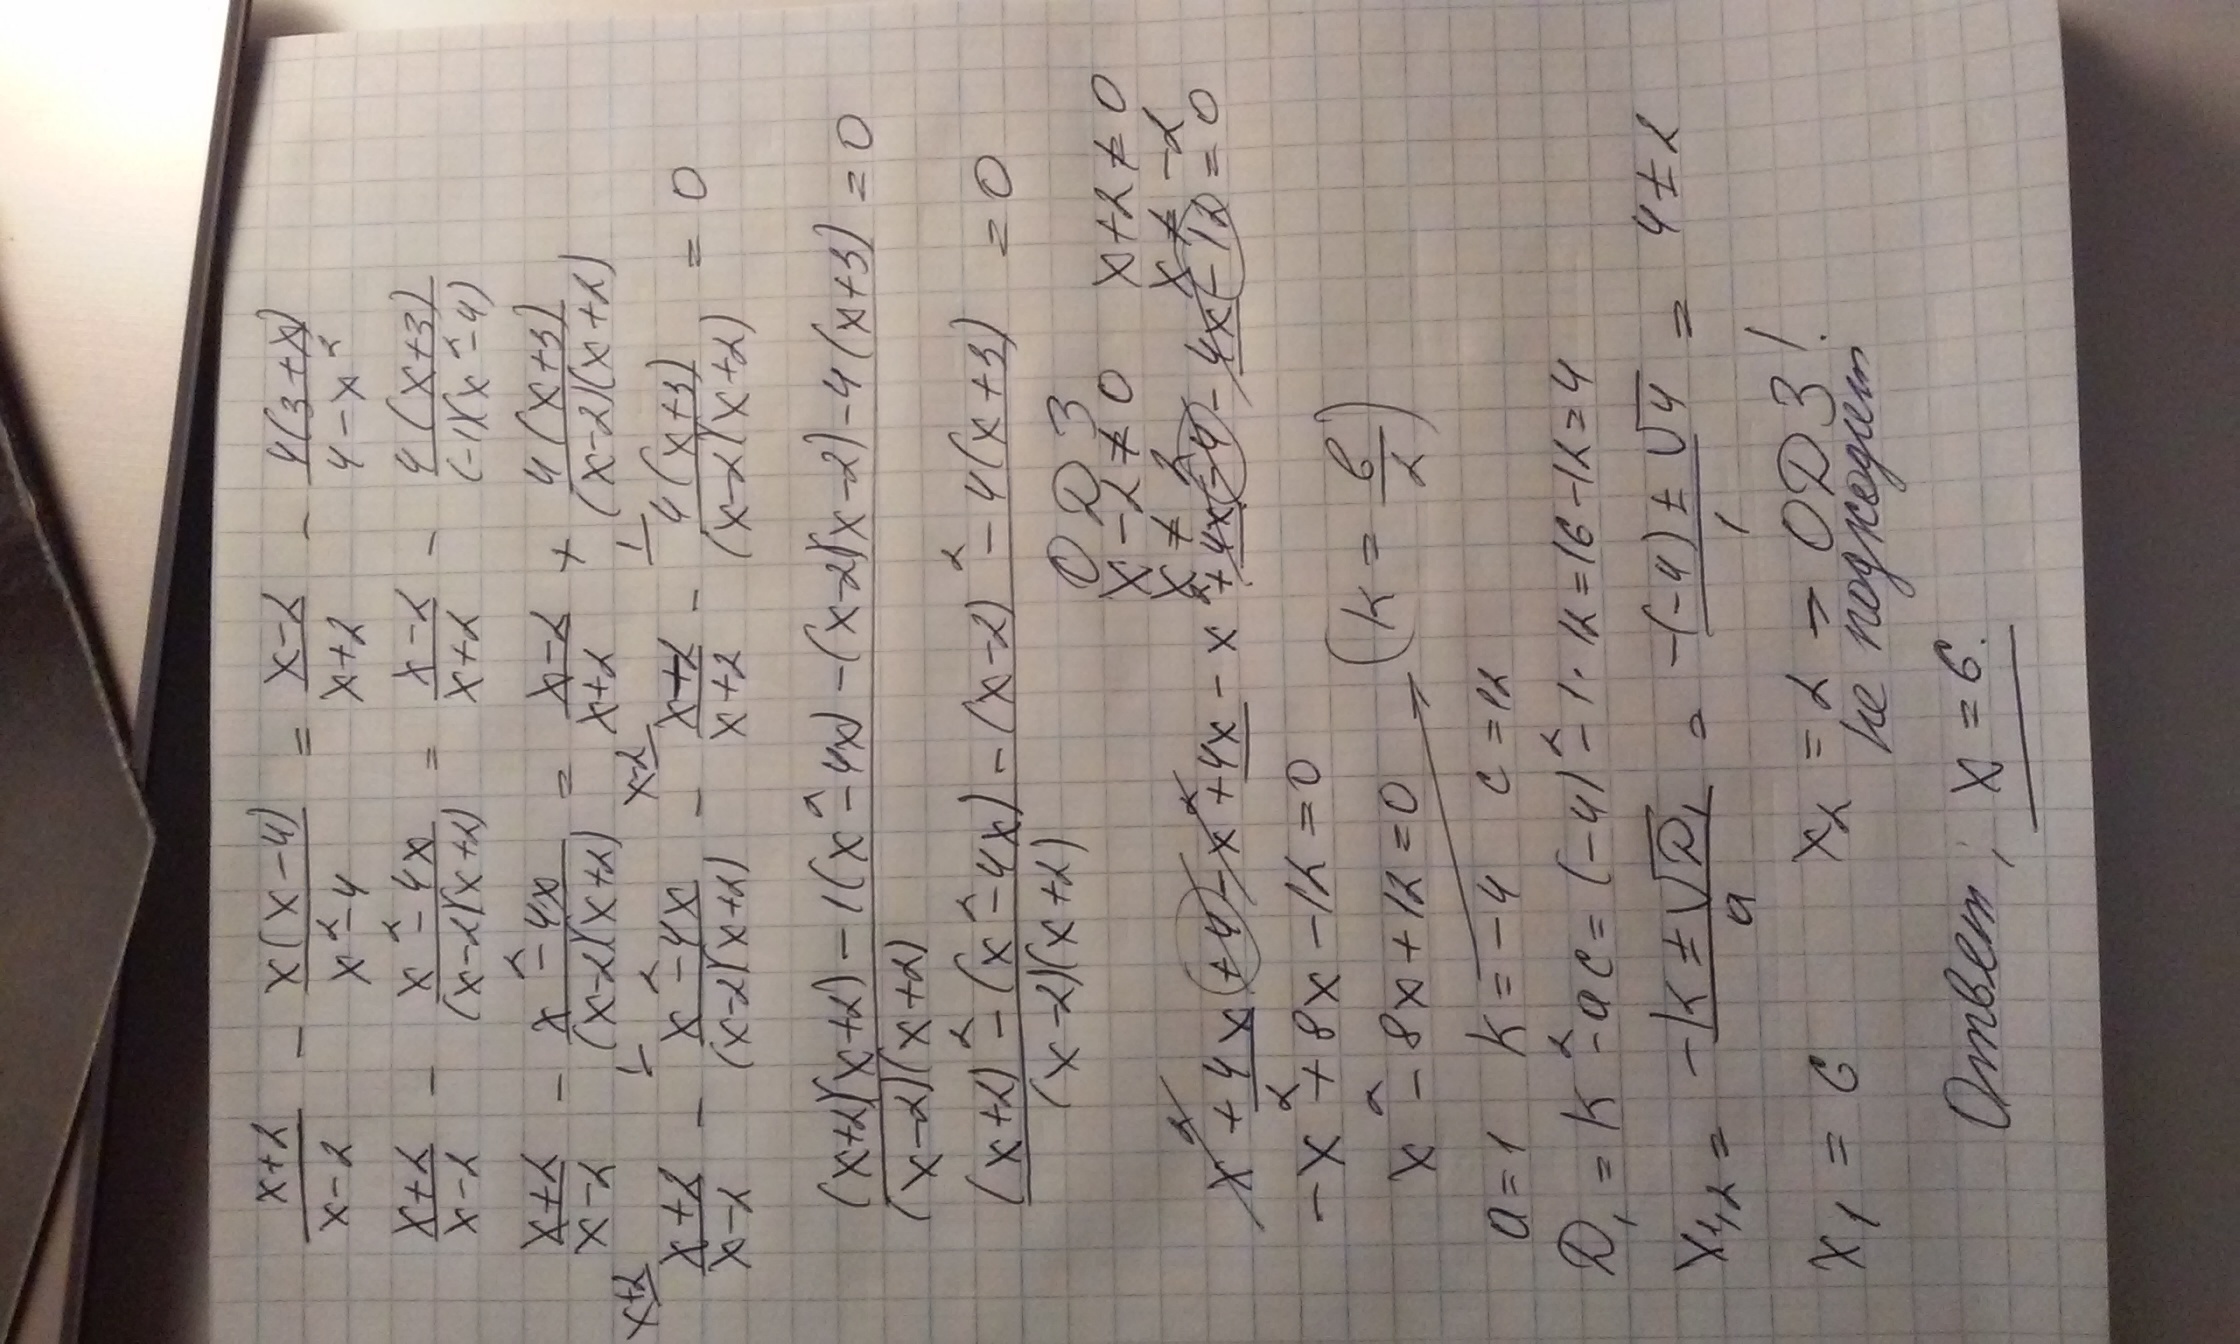 (x+2)/(x-2) - x(x-4)/(x²-4) = (x-2)/(x+2) - 4(3+x)/(4-x²)
(x+2)/(x-2) - (x²-4x)/((x-2)(x+2)) = (x-2)/(x+2) - 4(x+3)/((-1)(x²-4))
(x+2)/(x-2) - (x²-4x)/((x-2)(x+2)) = (x-2)/(x+2) + 4(x+3)/((x-2)(x+2))
x+2 1 x-2 1
(x+2)/(x-2) - (x²-4x)/((x-2)(x+2)) - (x-2)/(x+2) - 4(x+3)/((x-2)(x+2)) = 0
((x+2)(x+2) - 1(x²-4x) - (x-2)(x-2) - 4(x+3))/((x-2)(x+2)) = 0
((x+2)² - (x²-4x) - (x-2)² - 4(x+3))/((x-2)(x+2)) = 0
ОДЗ
x-2≠0 x+2≠0
x≠2 x≠-2
x²+4x+4-x²+4x-x²+4x-4-4x-12=0
-x²+8x-12=0
x²-8x+12=0 (k = b/2)
a=1 k=-4 c=12
D₁=k²-ac=(-4)²-1·12=16-12=4
x₁,₂ = (-k±√D₁)/a = (-(-4)±√4)/1 = 4±2
x₁=6 x₂=2 → ОДЗ!
не подходит
Ответ: x=6.